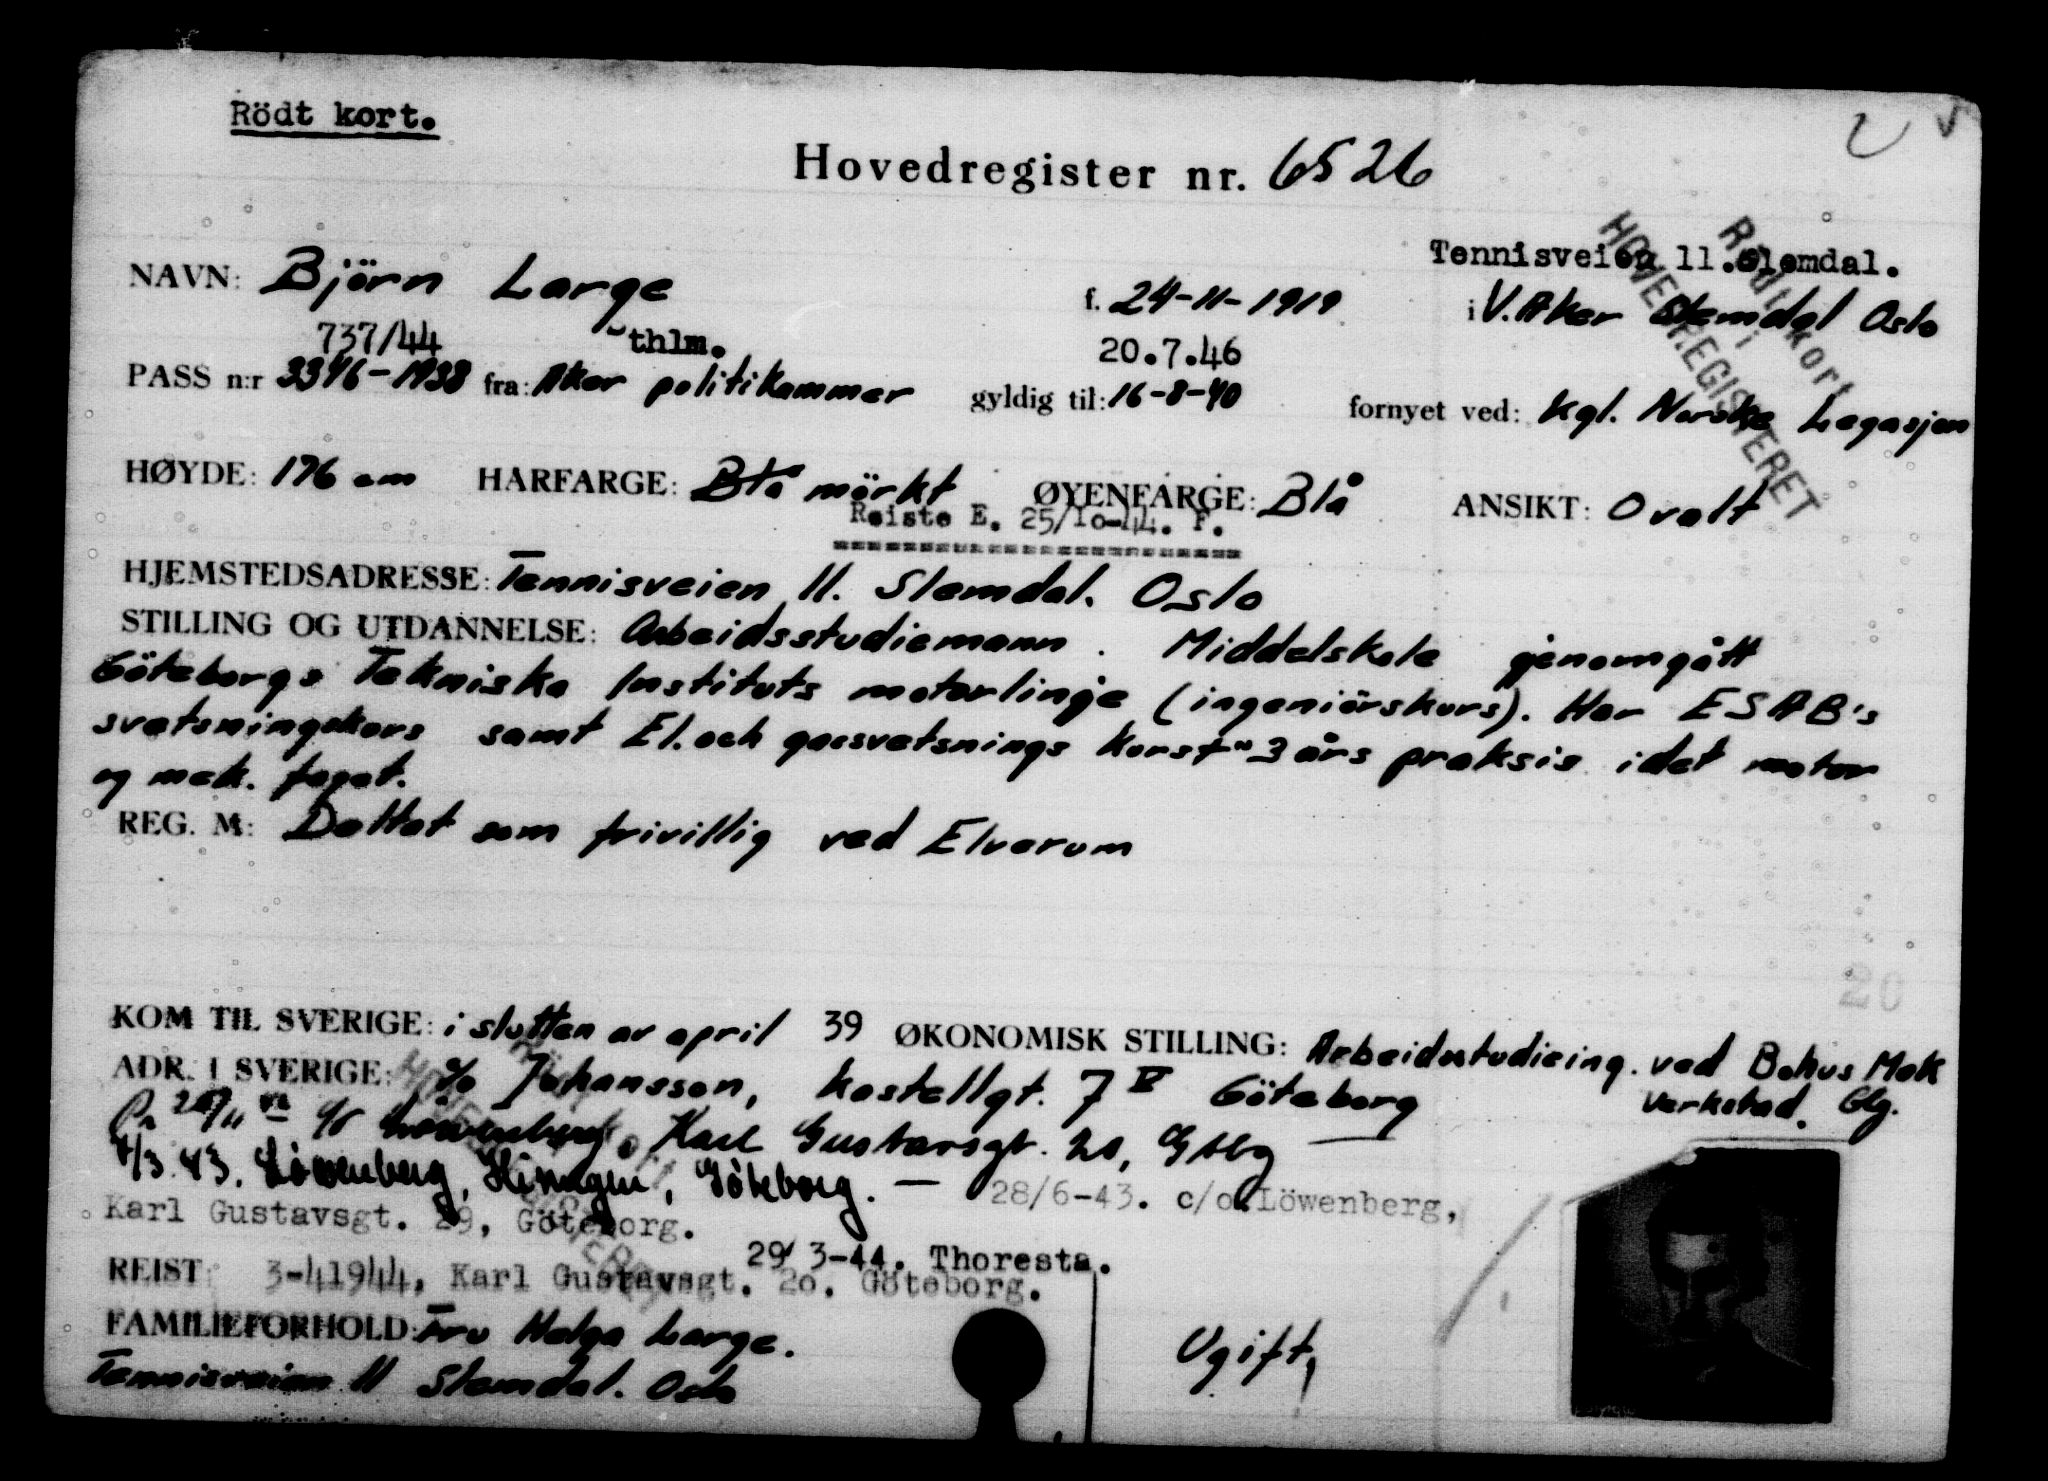 Rödt kort.
Hovedregister nr. 6526
Rødt kort i
HOVEDREGISTERET
Tennisveien 11. Slemdal.
NAVN: Björn Large f. 24-11-1919 i V. Aker Slemdal Oslo
737/44 "thlm. 20.7.46
PASS n:r 3346-1938 fra: Aker politikammer gyldig til: 16-8-40 fornyet ved: Kgl. Norske Legasjon
HØYDE: 176 cm HARFARGE: Blå mörkt ØYENFARGE: Blå ANSIKT: Ovalt
Reiste E. 25/10-44. F.
HJEMSTEDSADRESSE: Tennisveien 11. Slemdal. Oslo
STILLING OG UTDANNELSE: Arbeidsstudiemann. Middelskole gjenomgått
Göteborgs Tekniska Instituts motorlinje (ingeniörskurs). Har ESAB's
svetsningskurs samt El. och gassvetsnings kurs + 3 års praksis i det motor
og mek. faget.
REG. M: Deltat som frivillig ved Elverum
20
KOM TIL SVERIGE: i slutten av april 39 ØKONOMISK STILLING: Arbeidsstudieing. ved Bohus Mek
Verkstad. Gbg.
ADR. I SVERIGE: c/o Johansson, Kastellgt. 7 IV Göteborg
c/o Löwenberg, Karl Gustavsgt. 20, Gtbg
4/3 43. Löwenberg, Hisingen, Göteborg. — 28/6-43. c/o. Löwenberg,
Karl Gustavsgt. 29, Göteborg.
29/3-44. Thoresta.
REIST: 3-41944, Karl Gustavsgt. 2o. Göteborg.
FAMILIEFORHOLD: Fru Helga Large.
Tennisveien 11 Slemdal. Oslo
Ugift,